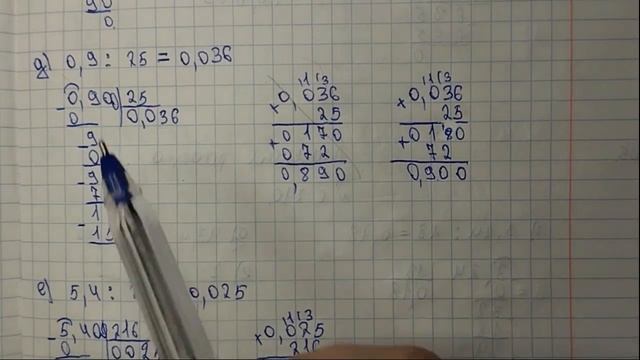 90
0
д) 0,9 : 25 = 0,036
0,900 25
0 0,036
9
0
9
7
1
1
113
0,036
× 25
+ 0170
072
0,890
113
0,036
× 25
+ 0180
72
0,900
е) 5,4 : 0,025
5,400 216
0 0,02
113
× 0,025
216